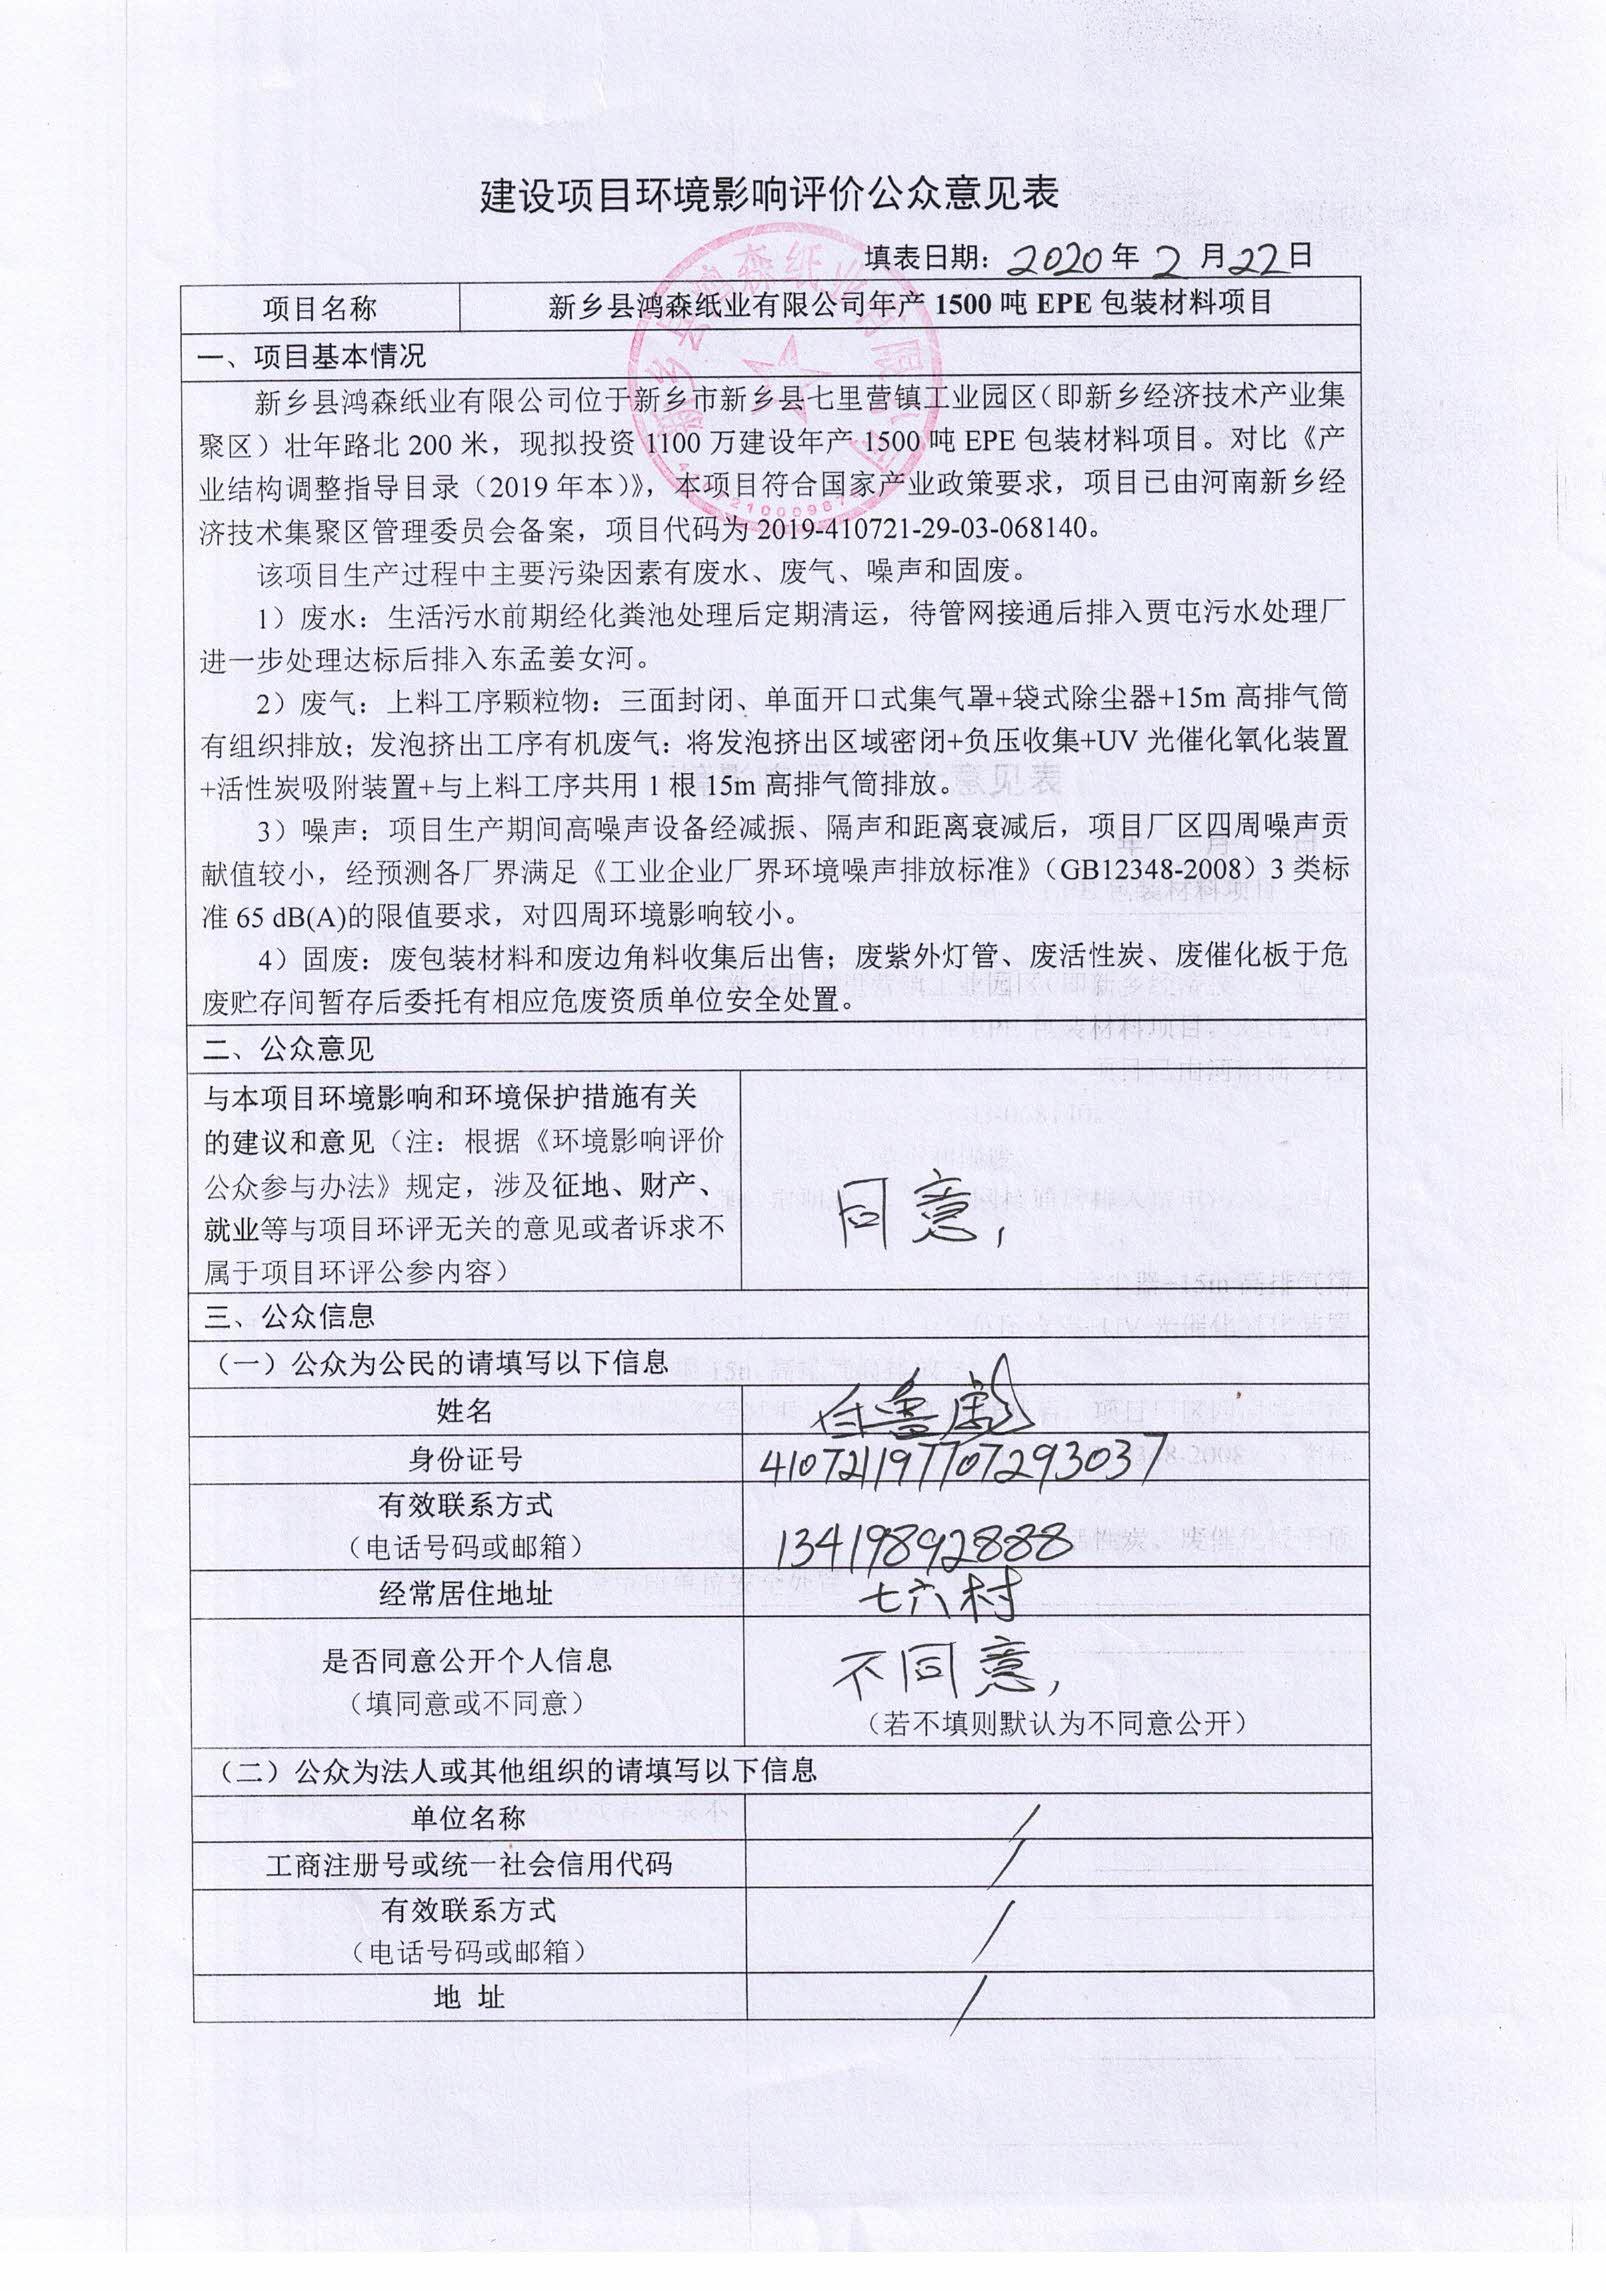 建设项目环境影响评价公众意见表
填表日期：2020年2月22日
项目名称 新乡县鸿森纸业有限公司年产1500吨EPE包装材料项目
一、项目基本情况
新乡县鸿森纸业有限公司位于新乡市新乡县七里营镇工业园区（即新乡经济技术产业集
聚区）壮年路北200米，现拟投资1100万建设年产1500吨EPE包装材料项目。对比《产
业结构调整指导目录（2019年本）》，本项目符合国家产业政策要求，项目已由河南新乡经
济技术集聚区管理委员会备案，项目代码为2019-410721-29-03-068140。
该项目生产过程中主要污染因素有废水、废气、噪声和固废。
1）废水：生活污水前期经化粪池处理后定期清运，待管网接通后排入贾屯污水处理厂
进一步处理达标后排入东孟姜女河。
2）废气：上料工序颗粒物：三面封闭、单面开口式集气罩+袋式除尘器+15m高排气筒
有组织排放；发泡挤出工序有机废气：将发泡挤出区域密闭+负压收集+UV光催化氧化装置
+活性炭吸附装置+与上料工序共用1根15m高排气筒排放。
3）噪声：项目生产期间高噪声设备经减振、隔声和距离衰减后，项目厂区四周噪声贡
献值较小，经预测各厂界满足《工业企业厂界环境噪声排放标准》（GB12348-2008）3类标
准65 dB(A)的限值要求，对四周环境影响较小。
4）固废：废包装材料和废边角料收集后出售；废紫外灯管、废活性炭、废催化板于危
废贮存间暂存后委托有相应危废资质单位安全处置。
二、公众意见
与本项目环境影响和环境保护措施有关
的建议和意见（注：根据《环境影响评价
公众参与办法》规定，涉及征地、财产、
就业等与项目环评无关的意见或者诉求不
属于项目环评公参内容）
同意，
三、公众信息
（一）公众为公民的请填写以下信息
姓名
身份证号 410721197707293037
有效联系方式
（电话号码或邮箱） 13419892888
经常居住地址 七六村
是否同意公开个人信息
（填同意或不同意）
不同意，
（若不填则默认为不同意公开）
（二）公众为法人或其他组织的请填写以下信息
单位名称 /
工商注册号或统一社会信用代码 /
有效联系方式
（电话号码或邮箱） /
地 址 /